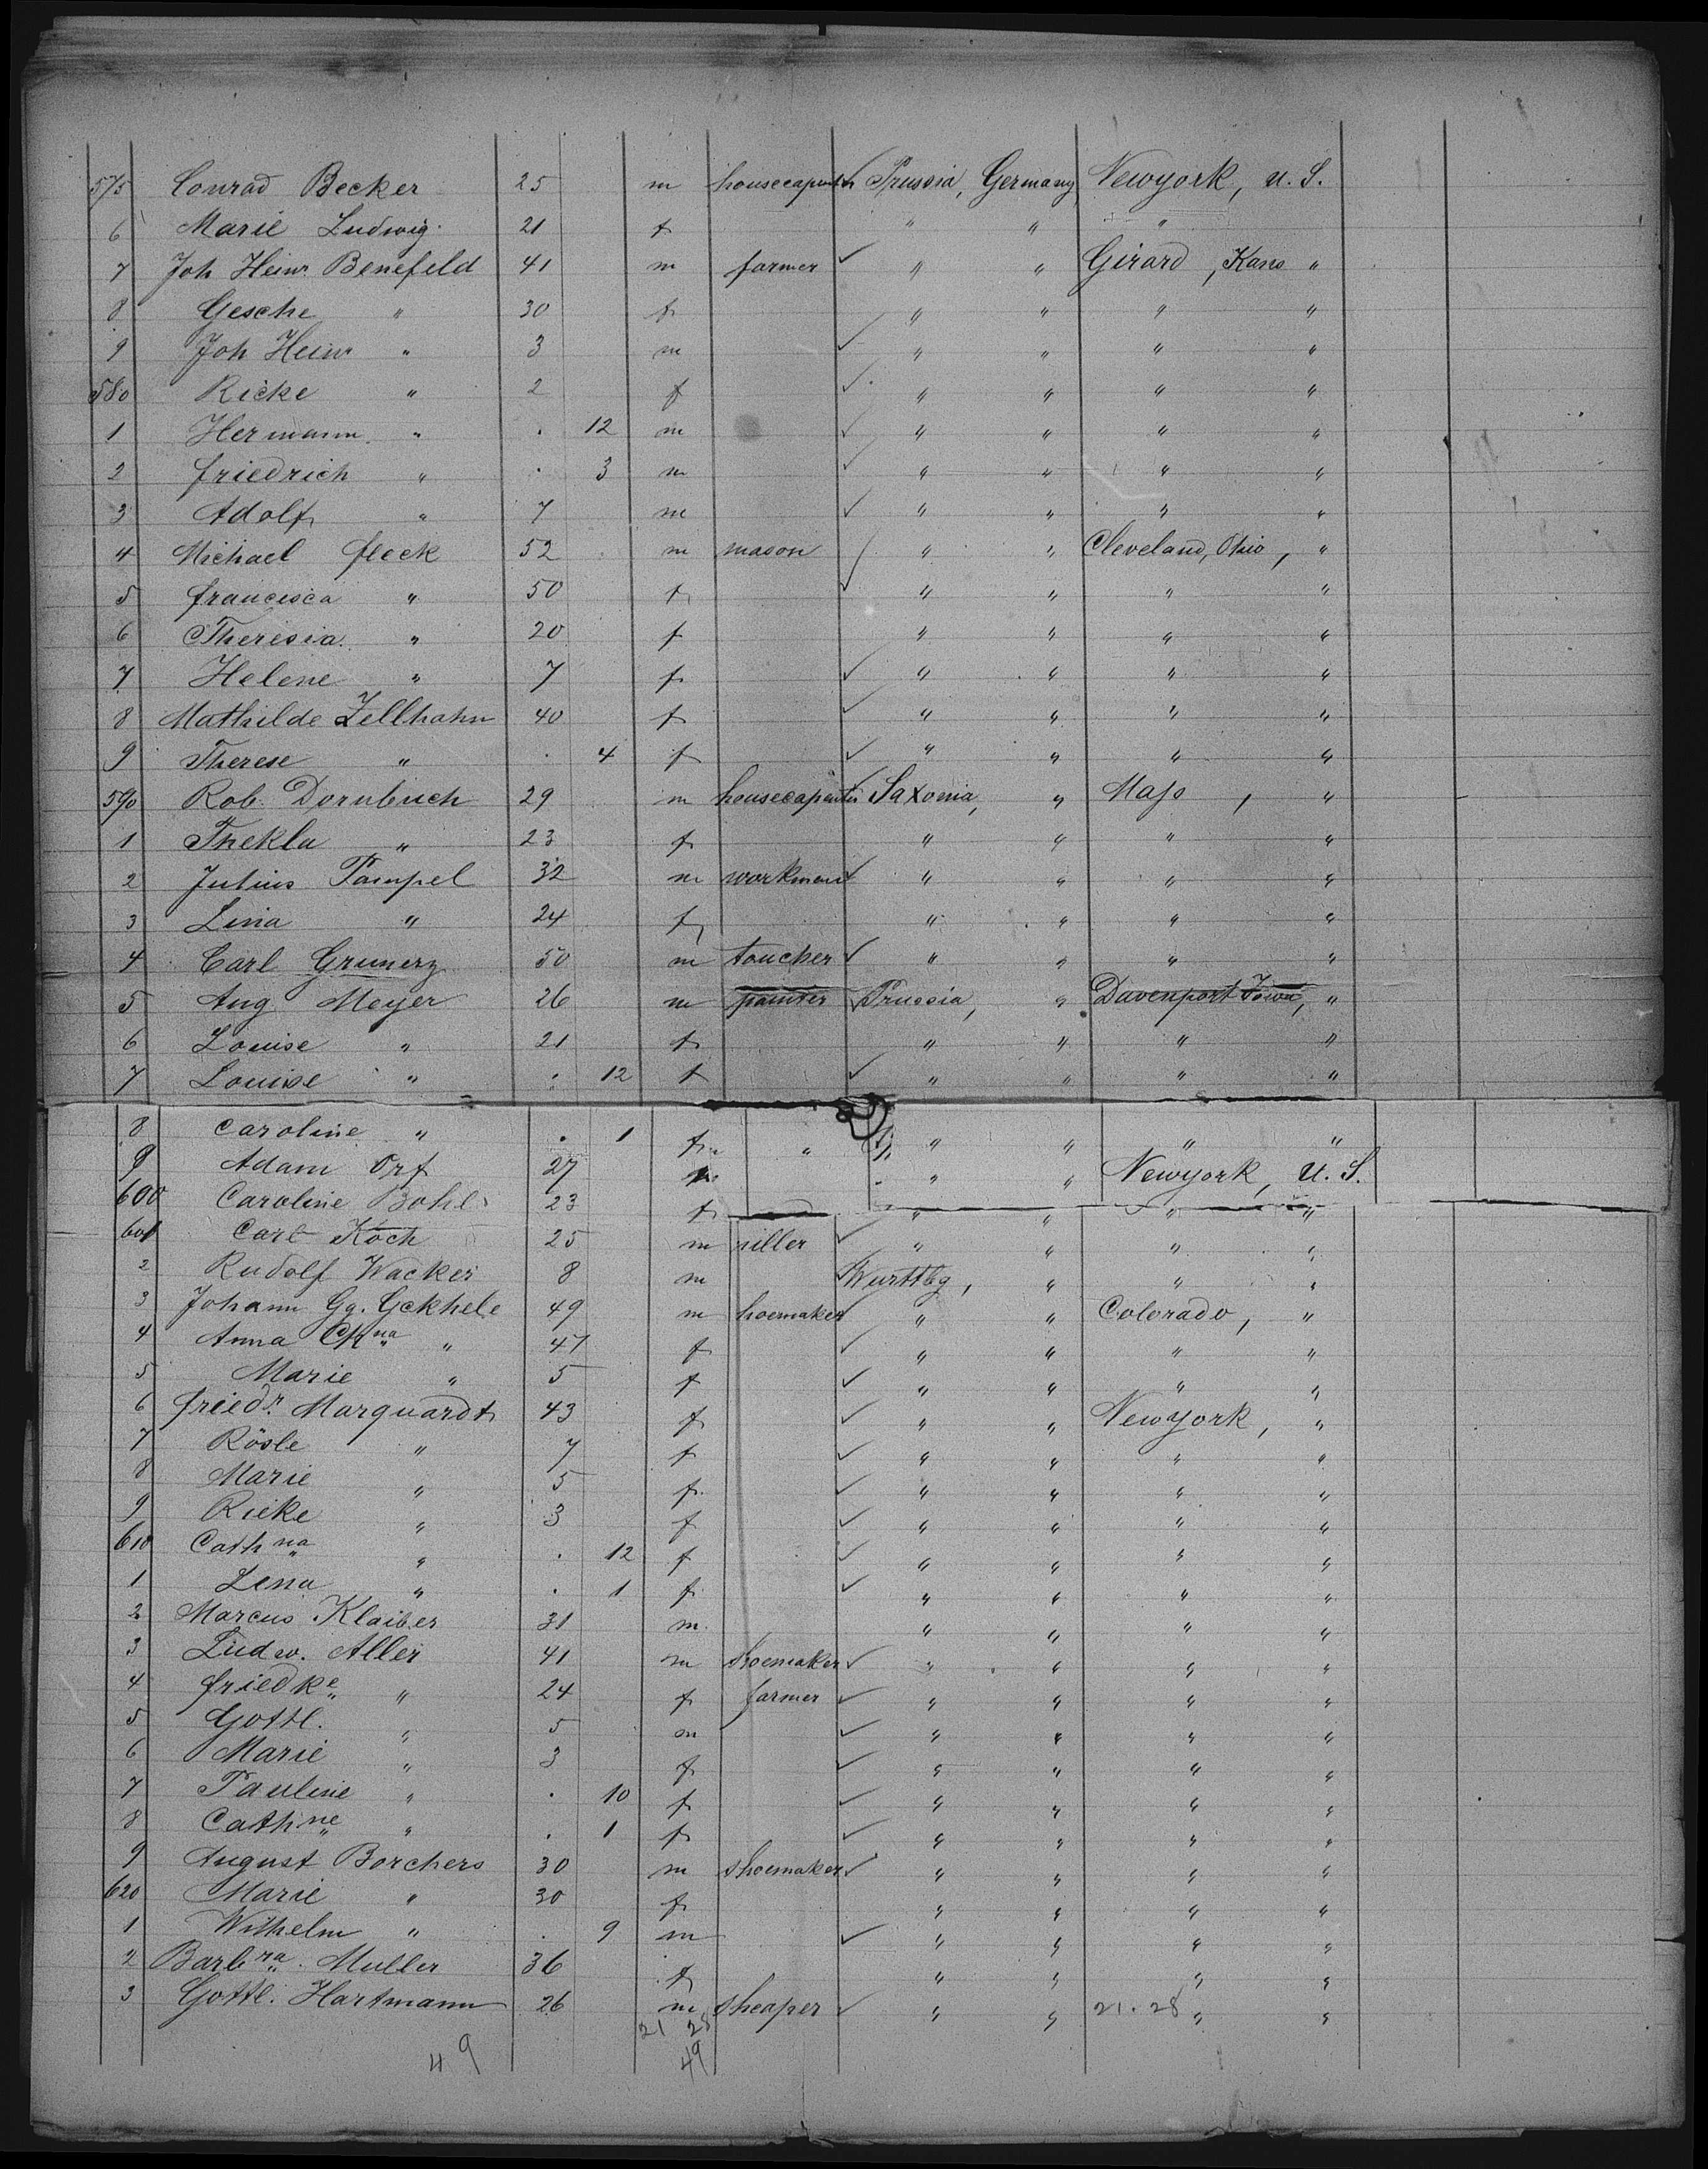 575 Conrad Becker 25 m housecapenter Prussia, Germany Newyork, U.S.
6 Marie Ludwig 21 f " " "
7 Joh Heinr Benefeld 41 m farmer " " Girard, Kans "
8 Gesche " 30 f " " " "
9 Joh Heinr " 3 m " " " "
580 Ricke " 2 f " " " "
1 Hermann " . 12 m " " " "
2 friedrich " . 3 m " " " "
3 Adolf " 7 m " " " "
4 Michael fleck 52 m mason " " Cleveland, Ohio, "
5 francisca " 50 f " " " "
6 Theresia " 20 f " " " "
7 Helene " 7 f " " " "
8 Mathilde Zellhahn 40 f " " " "
9 Therese " . 4 f " " " "
590 Rob. Dornbuch 29 m housecapenter Saxonia, " Mass, "
1 Thekla " 23 f " " " "
2 Julius Pampel 32 m workman " " " "
3 Lina " 24 f " " " "
4 Carl Grunerz 50 m toucher " " " "
5 Aug Meyer 26 m painter Prussia, " Davenport Iowa, "
6 Louise " 21 f " " " "
7 Louise " . 12 f " " " "
8 Caroline " . 1 f " " " " "
9 Adam Orf 27 " " Newyork, U.S.
600 Caroline Bohl 23 f " " " "
601 Carl Koch 25 m niller " " " "
2 Rudolf Wacker 8 m Wurttbg, " " "
3 Johann Gg. Gekhele 49 m hoemaker " " Colorado, "
4 Anna Chna " 47 f " " " "
5 Marie " 5 f " " " "
6 friedr. Marquardt 43 f " " Newyork, "
7 Rösle " 7 f " " " "
8 Marie " 5 f " " " "
9 Rieke " 3 f " " " "
610 Cathna " . 12 f " " " "
1 Lena " . 1 f " " " "
2 Marcus Klaiber 31 m " " " "
3 Ludw. Aller 41 m shoemaker " " " "
4 friedke " 24 f farmer " " " "
5 Gottl. " 5 m " " " "
6 Marie " 3 f " " " "
7 Pauline " . 10 f " " " "
8 Cathne " . 1 f " " " "
9 August Borchers 30 m shoemaker " " " "
620 Marie " 30 f " " " "
1 Wilhelm " . 9 m " " " "
2 Barbra. Muller 36 f " " " "
3 Gottl. Hartmann 26 m sheaper " " " "
21 28 21.28
49 49